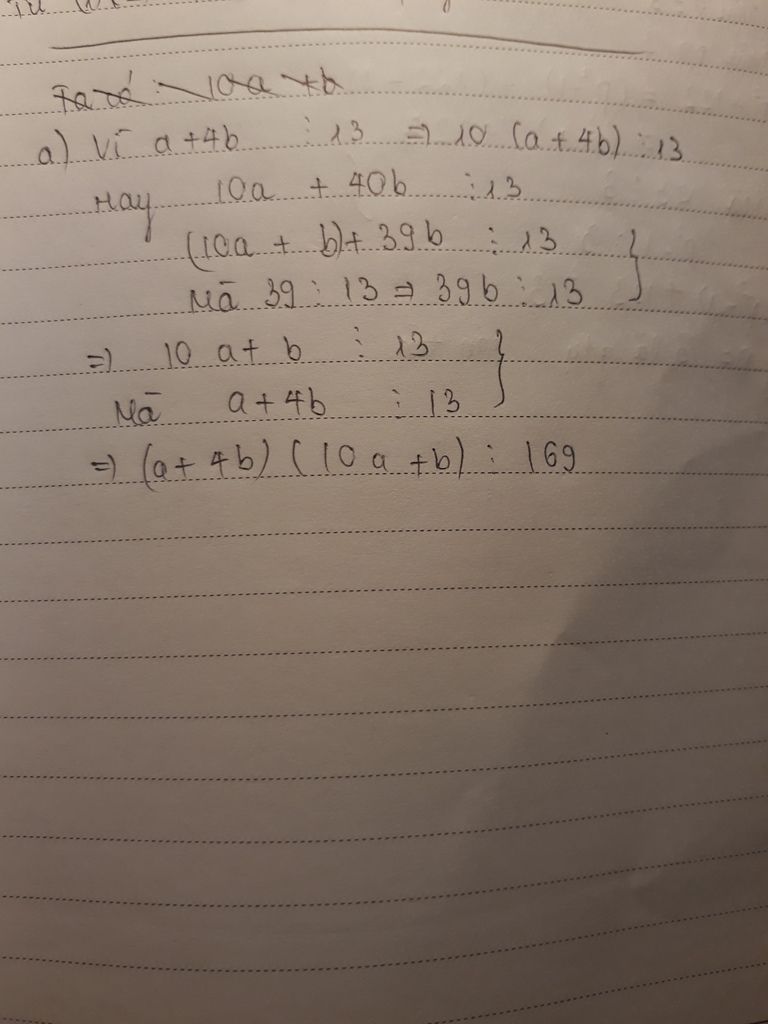 Ta có 10a + b
a) Vì a + 4b ⋮ 13 ⇒ 10 (a + 4b) ⋮ 13
Hay 10a + 40b ⋮ 13
(10a + b) + 39b ⋮ 13 }
Mà 39 ⋮ 13 ⇒ 39b ⋮ 13
⇒ 10a + b ⋮ 13 }
Mà a + 4b ⋮ 13
⇒ (a + 4b) (10a + b) ⋮ 169